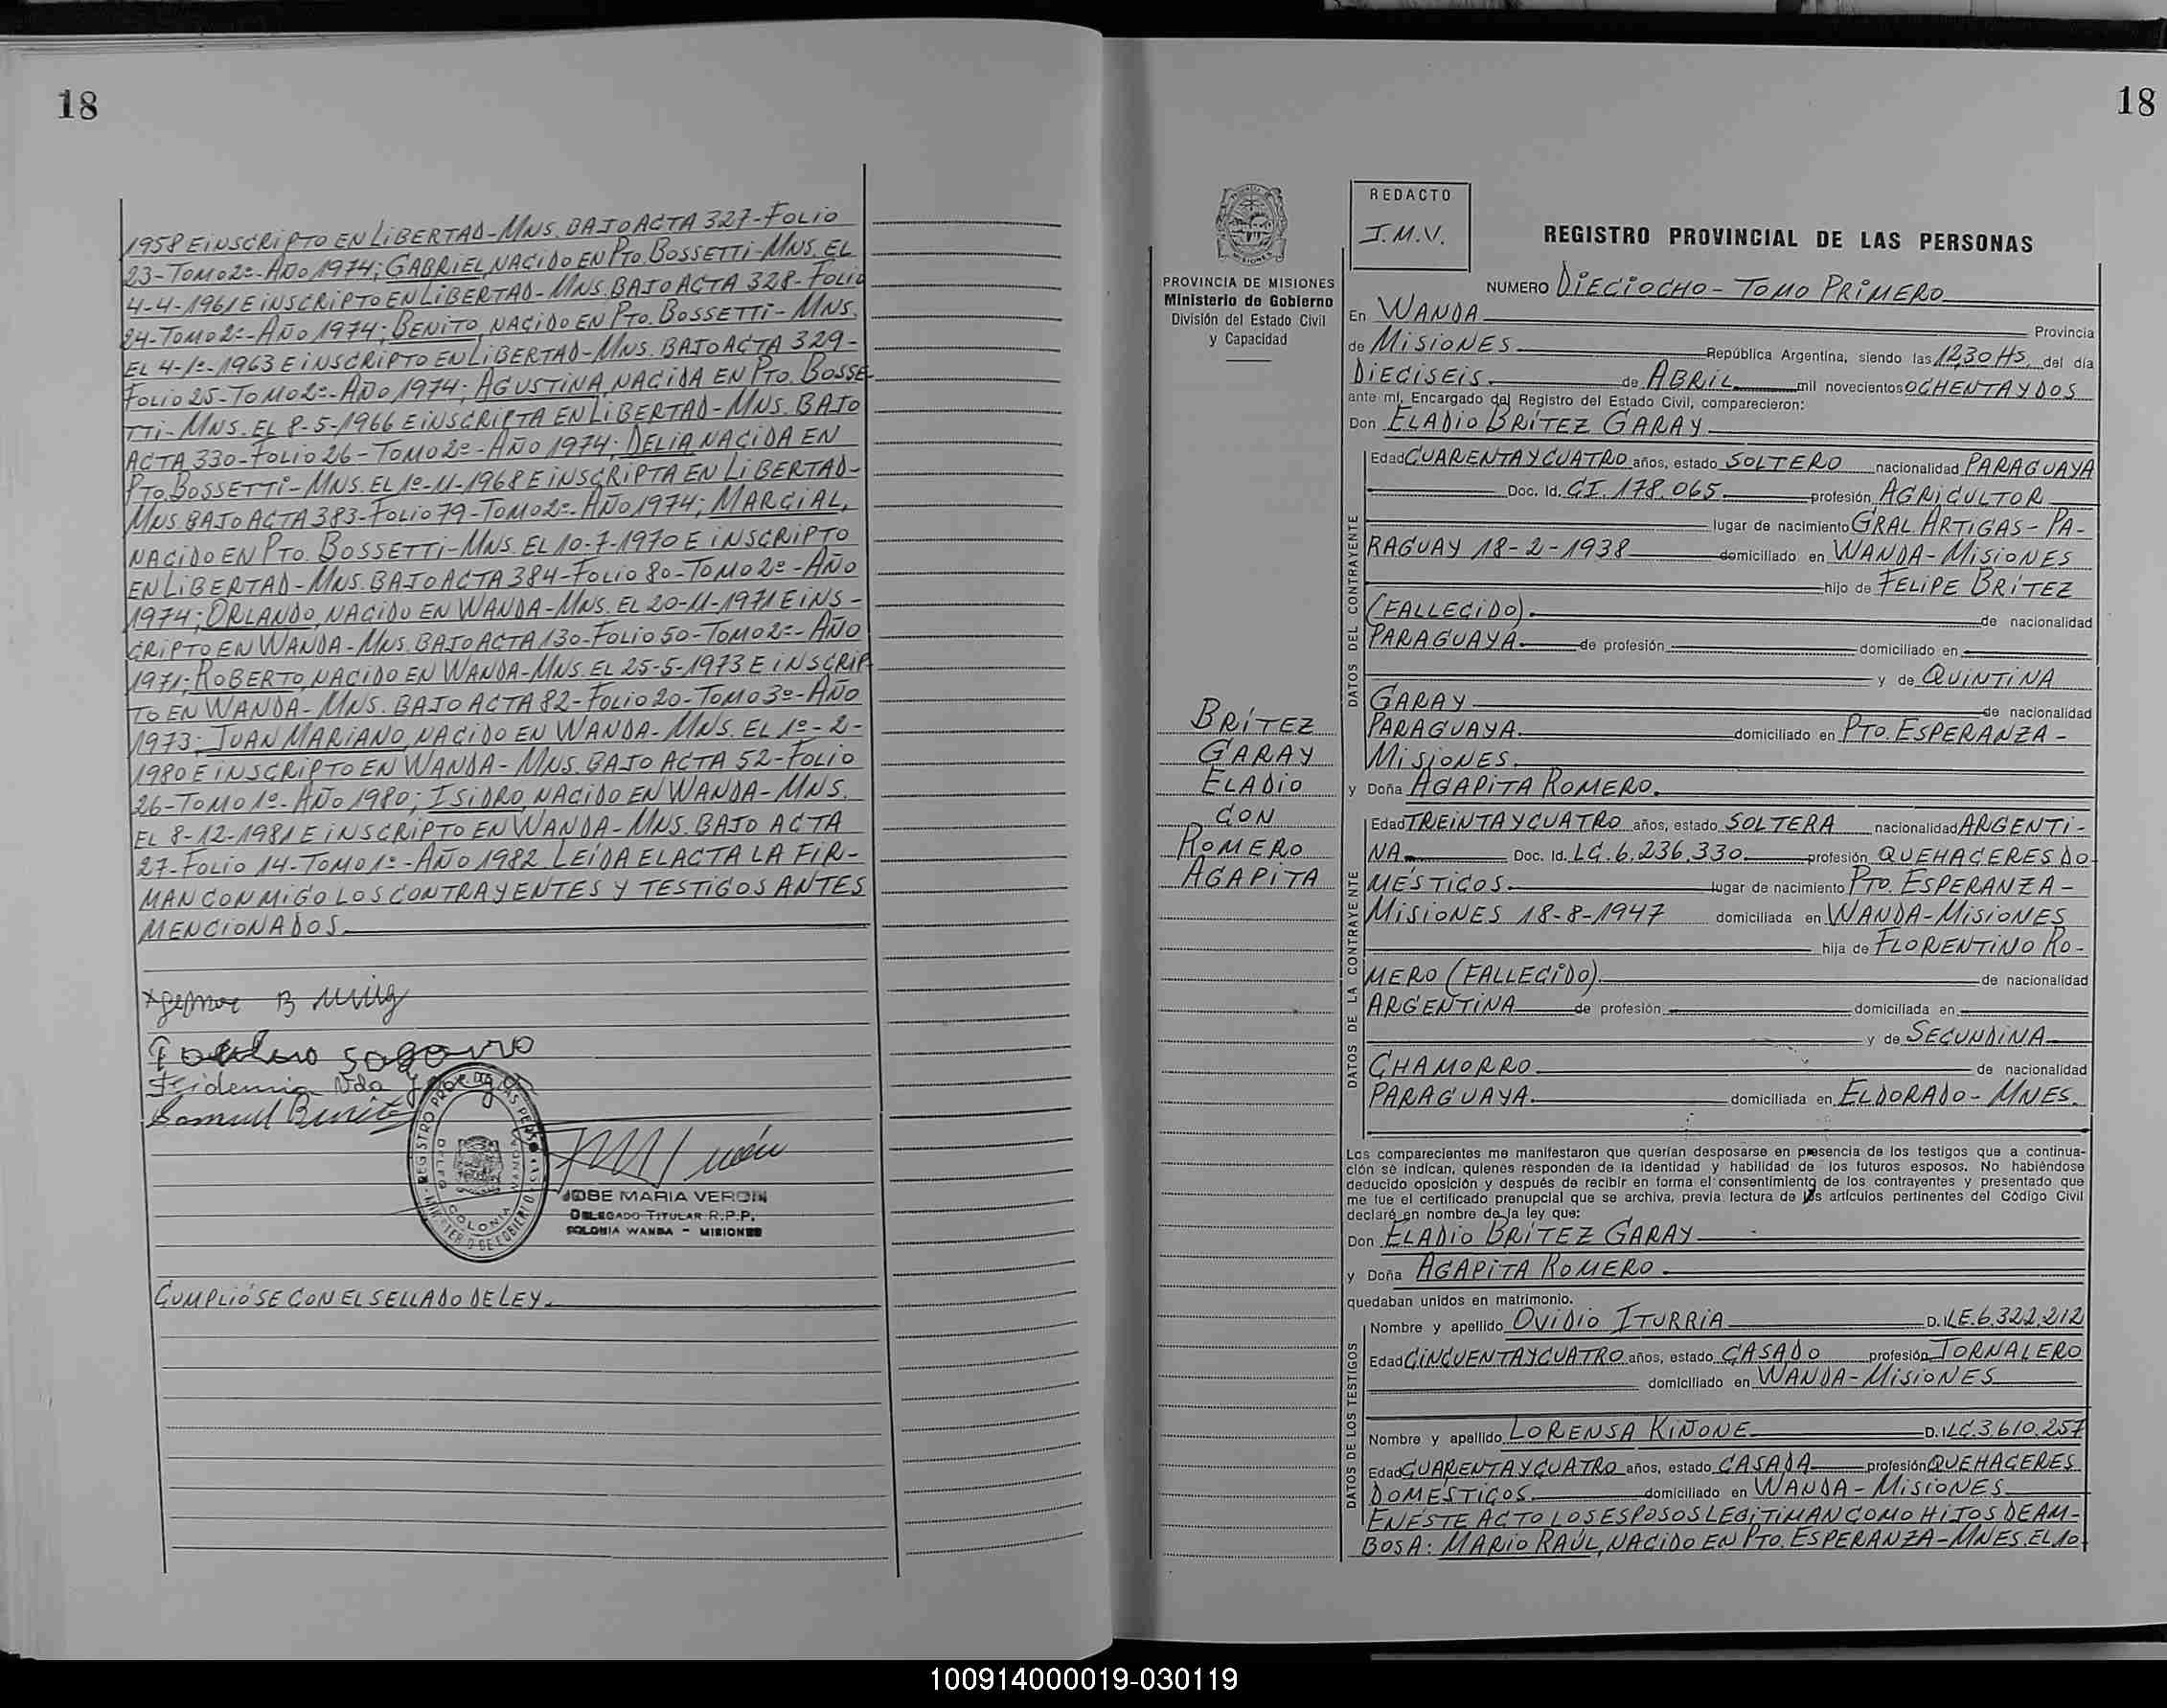 18
1958 E iNSCRiPTO EN LiBERTAD-MNS. BAJO ACTA 327-FOLiO
23-TOMO 2º-AÑO 1974; GABRiEL, NACiDO EN PTO. BOSSETTi-MNS. EL
4-4-1961 E iNSCRiPTO EN LiBERTAD-MNS. BAJO ACTA 328-FOLiO
24-TOMO 2º-AÑO 1974; BENiTO, NACiDO EN PTO. BOSSETTi-MNS.
EL 4-1º-1963 E iNSCRiPTO EN LiBERTAD-MNS. BAJO ACTA 329-
FOLiO 25-TOMO 2º-AÑO 1974; AGUSTiNA, NACiDA EN PTO. BOSSE-
TTi-MNS. EL 8-5-1966 E iNSCRiPTA EN LiBERTAD-MNS. BAJO
ACTA 330-FOLiO 26-TOMO 2º-AÑO 1974; DELiA NACiDA EN
PTO. BOSSETTi-MNS. EL 1º-11-1968 E iNSCRiPTA EN LiBERTAD-
MNS BAJO ACTA 383-FOLiO 79-TOMO 2º-AÑO 1974; MARCiAL,
NACiDO EN PTO. BOSSETTi-MNS. EL 10-7-1970 E iNSCRiPTO
EN LiBERTAD-MNS. BAJO ACTA 384-FOLiO 80-TOMO 2º-AÑO
1974; ORLANDO, NACiDO EN WANDA-MNS. EL 20-11-1971 E iNS-
CRiPTO EN WANDA-MNS. BAJO ACTA 130-FOLiO 50-TOMO 2º-AÑO
1971; ROBERTO, NACiDO EN WANDA-MNS. EL 25-5-1973 E iNSCRiP-
TO EN WANDA-MNS. BAJO ACTA 82-FOLiO 20-TOMO 3º-AÑO
1973; JUAN MARiANO, NACiDO EN WANDA-MNS. EL 1º-2-
1980 E iNSCRiPTO EN WANDA-MNS. BAJO ACTA 52-FOLiO
26-TOMO 1º-AÑO 1980; ISiDRO, NACiDO EN WANDA-MNS.
EL 8-12-1981 E iNSCRiPTO EN WANDA-MNS. BAJO ACTA
27-FOLiO 14-TOMO 1º-AÑO 1982. LEíDA EL ACTA LA FiR-
MAN CONMiGO LOS CONTRAYENTES Y TESTiGOS ANTES
MENCiONADOS.
JOSE MARIA VERON
DELEGADO TITULAR R.P.P.
COLONIA WANDA - MISIONES
CUMPLiÓSE CON EL SELLADO DE LEY.
18
PROVINCIA DE MISIONES
Ministerio de Gobierno
División del Estado Civil
y Capacidad
BRíTEZ
GARAY
ELADiO
CON
ROMERO
AGAPiTA
REDACTO
J.M.V.
REGISTRO PROVINCIAL DE LAS PERSONAS
NUMERO DiECiOCHO - TOMO PRiMERO
En WANDA Provincia
de MiSiONES República Argentina, siendo las 12,30 HS, del día
DiECiSEiS de ABRiL mil novecientos OCHENTA Y DOS
ante mí, Encargado del Registro del Estado Civil, comparecieron:
Don ELADiO BRíTEZ GARAY
DATOS DEL CONTRAYENTE
Edad CUARENTA Y CUATRO años, estado SOLTERO nacionalidad PARAGUAYA
Doc. Id. CI. 178.065 profesión AGRiCULTOR
lugar de nacimiento GRAL. ARTiGAS-PA-
RAGUAY 18-2-1938 domiciliado en WANDA-MiSiONES
hijo de FELiPE BRíTEZ
(FALLECiDO). de nacionalidad
PARAGUAYA de profesión domiciliado en
y de QUiNTiNA
GARAY de nacionalidad
PARAGUAYA domiciliado en PTO. ESPERANZA-
MiSiONES.
y Doña AGAPiTA ROMERO.
DATOS DE LA CONTRAYENTE
Edad TREiNTA Y CUATRO años, estado SOLTERA nacionalidad ARGENTi-
NA Doc. Id. LC. 6.236.330 profesión QUEHACERES DO-
MÉSTiCOS lugar de nacimiento PTO. ESPERANZA-
MiSiONES 18-8-1947 domiciliada en WANDA-MiSiONES
hija de FLORENTiNO RO-
MERO (FALLECiDO). de nacionalidad
ARGENTiNA de profesión domiciliada en
y de SECUNDiNA
CHAMORRO de nacionalidad
PARAGUAYA domiciliada en ELDORADO-MNES.
Los comparecientes me manifestaron que querían desposarse en presencia de los testigos que a continua-
ción se indican, quienes responden de la identidad y habilidad de los futuros esposos. No habiéndose
deducido oposición y después de recibir en forma el consentimiento de los contrayentes y presentado que
me fue el certificado prenupcial que se archiva, previa lectura de los artículos pertinentes del Código Civil
declaré en nombre de la ley que:
Don ELADiO BRíTEZ GARAY
y Doña AGAPiTA ROMERO.
quedaban unidos en matrimonio.
DATOS DE LOS TESTIGOS
Nombre y apellido OViDiO ITURRiA D.I. LE. 6.322.212
Edad CiNCUENTA Y CUATRO años, estado CASADO profesión JORNALERO
domiciliado en WANDA-MiSiONES
Nombre y apellido LORENSA KiÑONE D.I. LC. 3.610.257
Edad CUARENTA Y CUATRO años, estado CASADA profesión QUEHACERES
DOMÉSTiCOS domiciliado en WANDA-MiSiONES
EN ÉSTE ACTO LOS ESPOSOS LEGiTiMAN COMO HiJOS DE AM-
BOS A: MARiO RAÚL, NACiDO EN PTO. ESPERANZA-MNES. EL 10-
100914000019-030119